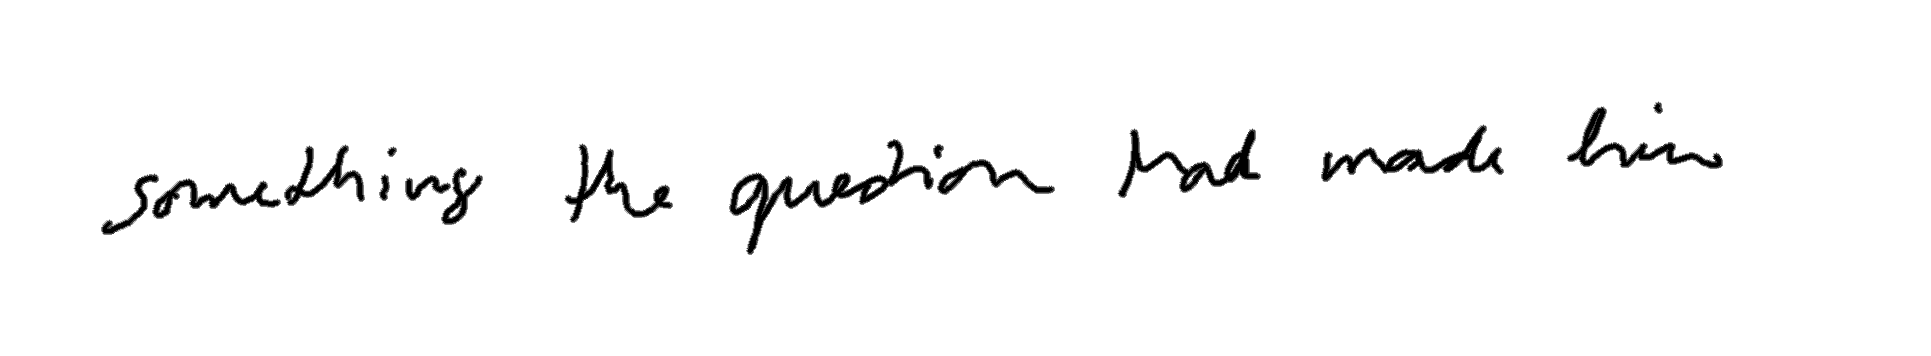 something the question had made him